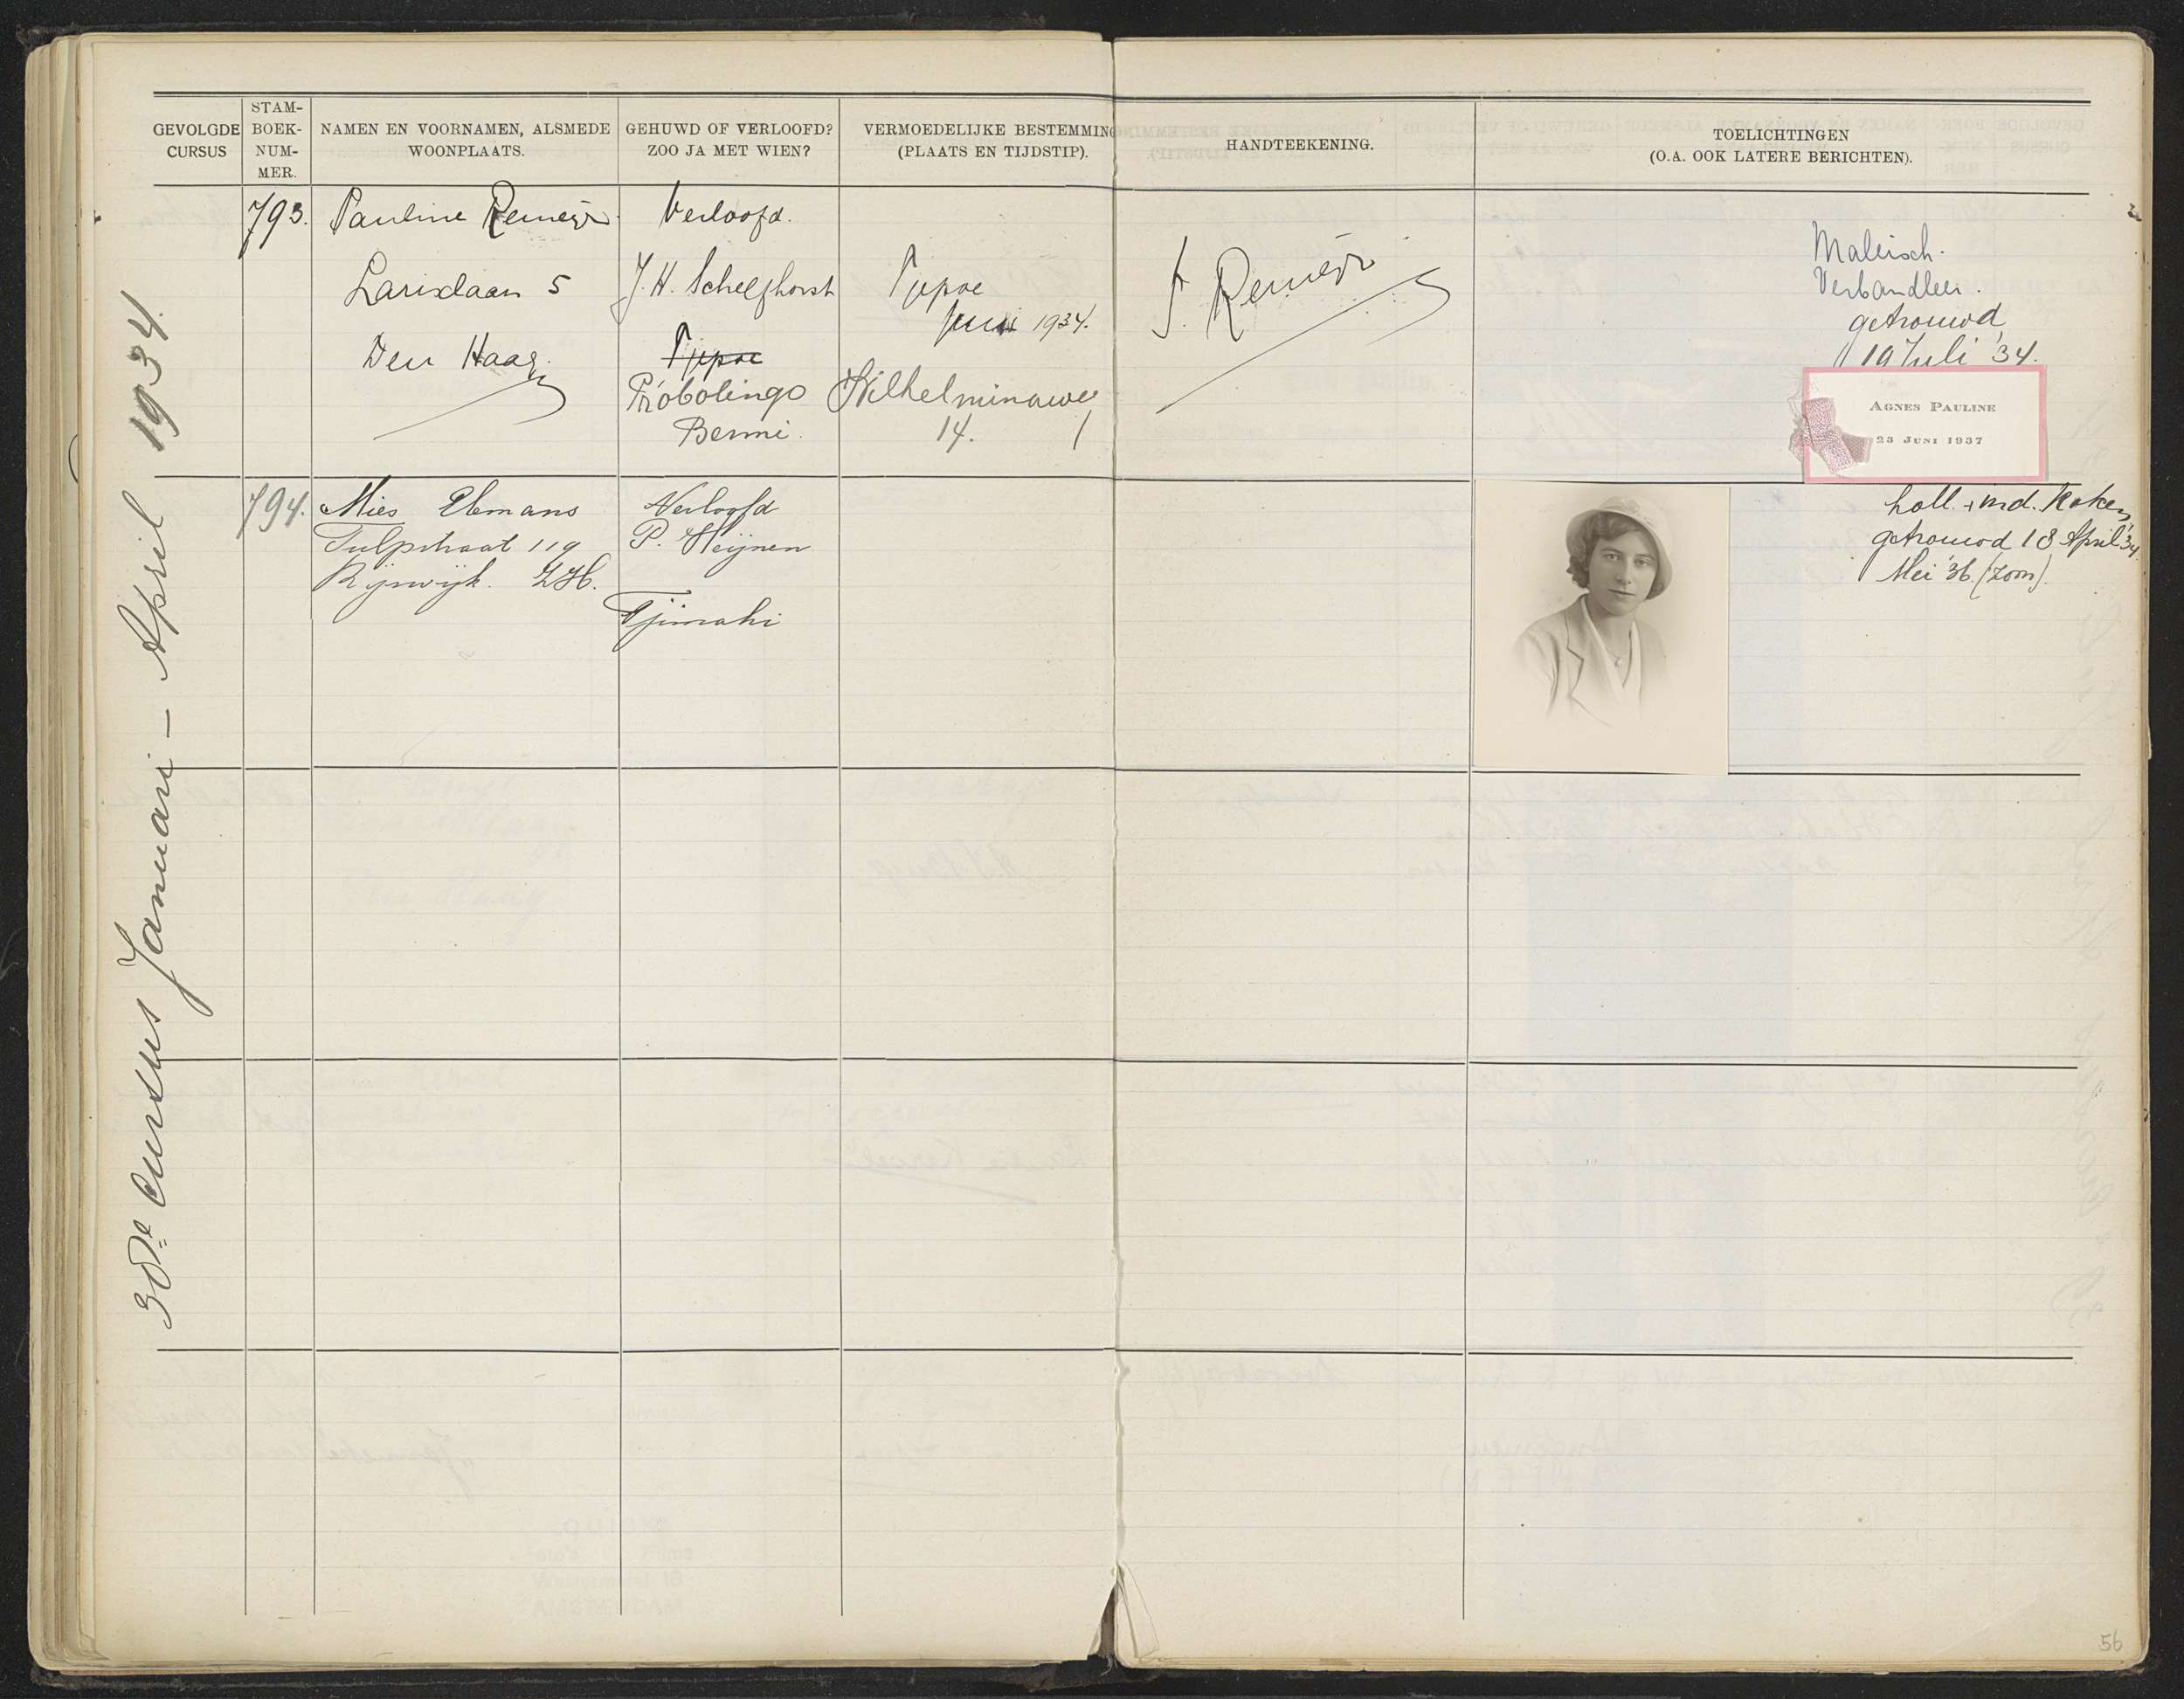 GEVOLGDE
CURSUS
STAM-
BOEK-
NUM-
MER.
NAMEN EN VOORNAMEN, ALSMEDE
WOONPLAATS.
GEHUWD OF VERLOOFD?
ZOO JA MET WIEN?
VERMOEDELIJKE BESTEMMING
(PLAATS EN TIJDSTIP).
HANDTEEKENING.
TOELICHTINGEN
(O.A. OOK LATERE BERICHTEN).
38de Cursus Januari - April 1934.
793.
Pauline Remeijn
Larixlaan 5
Den Haag.
Verloofd.
J. H. Schelfhorst
Tjepoe
Probolingo
Bermi.
Tjepoe
Juni 1934.
Wilhelminaweg
14.
P. Remeijn
Maleisch.
Verbandleer.
getrouwd
19 Juli '34.
AGNES PAULINE
23 JUNI 1937
794.
Mies Elemans
Tulpstraat 119
Rijswijk. Z.H.
Verloofd
P. Heijnen
Tjimahi
holl. + ind. Koken
getrouwd 18 April '34.
Mei '36. (zoon).
56